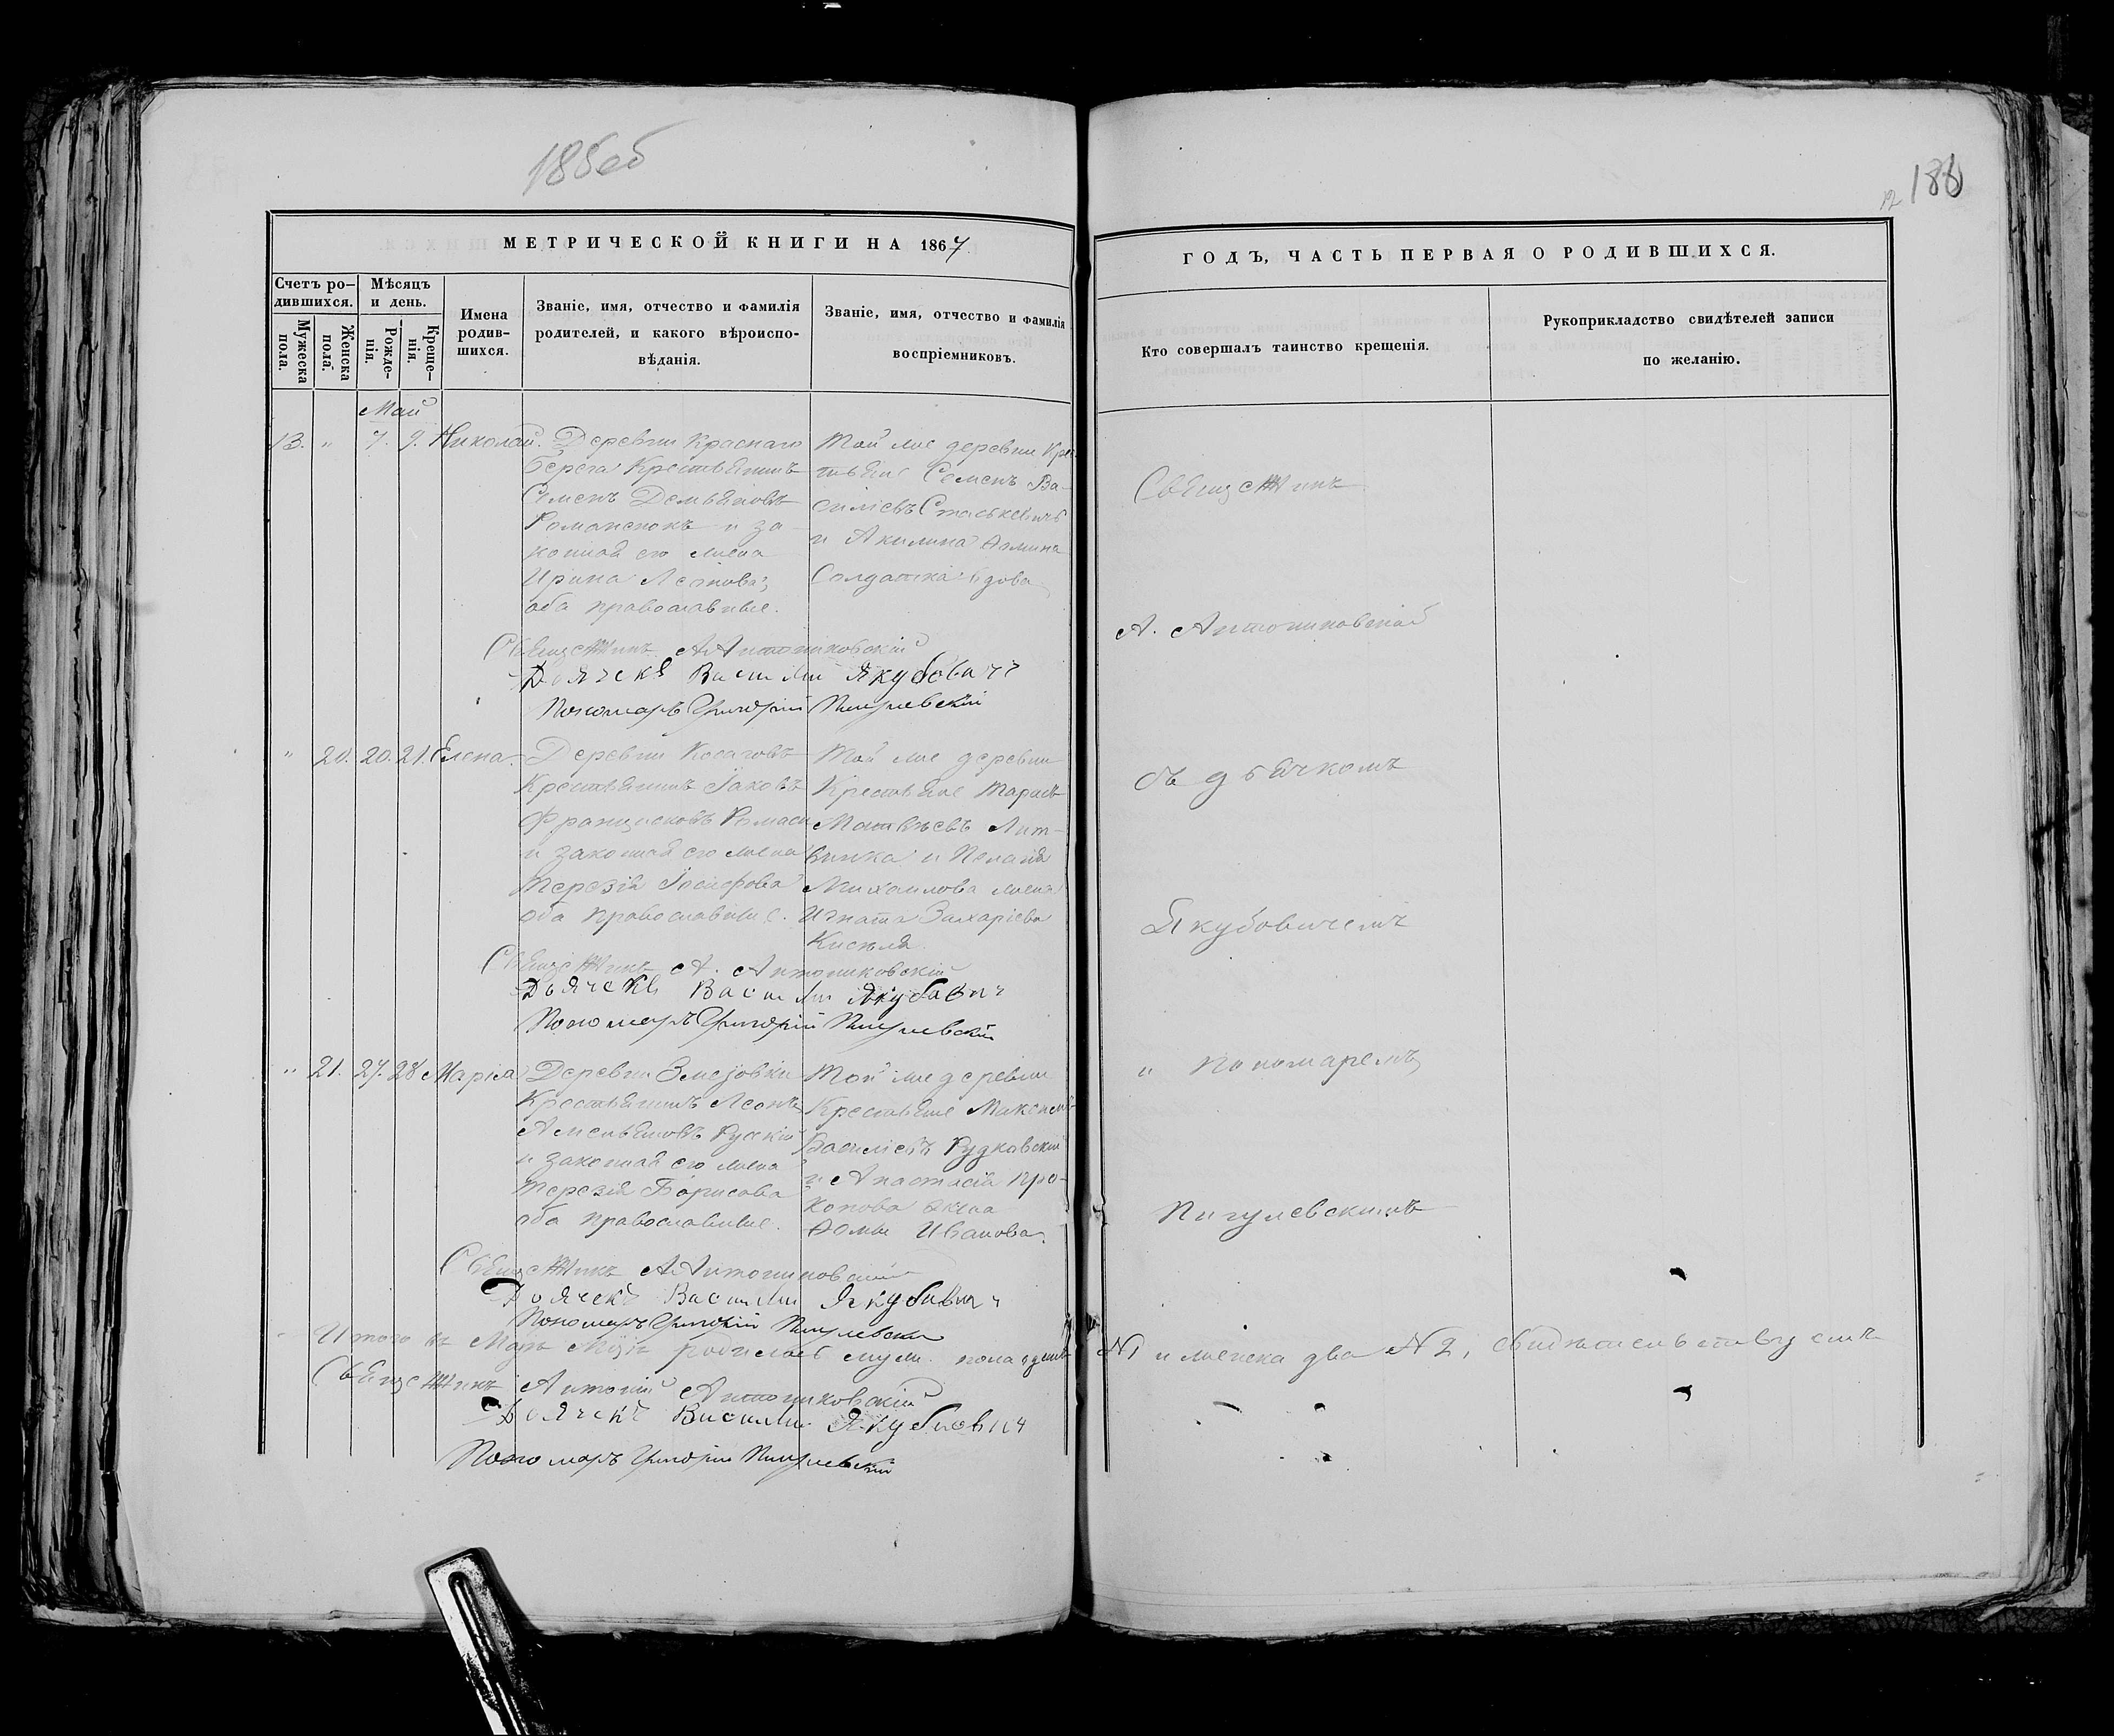 185об
188
12
МЕТРИЧЕСКОЙ КНИГИ НА 1867
ГОДЪ, ЧАСТЬ ПЕРВАЯ О РОДИВШИХСЯ.
Счетъ ро-
дившихся.
Мужеска
пола.
Женска
пола.
Мѣсяцъ
и день.
Рожде-
нія.
Креще-
нія.
Имена
родив-
шихся.
Званіе, имя, отчество и фамилія
родителей, и какого вѣроиспо-
вѣданія.
Званіе, имя, отчество и фамилія
воспріемниковъ.
Кто совершалъ таинство крещенія.
Рукоприкладство свидѣтелей записи
по желанію.
Май
13. " 7. 9. Николай.
Деревни Краснаго
Берега Крестьянинъ
Семенъ Демьяновъ
Романенокъ и за-
конная его жена
Ирина Леонова;
оба православные.
Той же деревни Крес-
тьяне Семенъ Ва-
силіевъ Стаськевичъ
и Акилина Ѳомина
Солдатка вдова
Священникъ А Антониковскій
Дьячекъ Василій Якубовичъ
Пономаръ Григорій Пигулевскій
" 20. 20. 21. Елена.
Деревни Косаговъ
Крестьянинъ Іаковъ
Францисковъ
и законная его жена
Терезія Іосифова
оба православные.
Той же деревни
Крестьяне Тарасъ
Матвѣевъ Лит-
винка и Пелагія
Михаилова жена
Игната Захаріева
Киселя.
Священникъ А. Антониковскій
Дьячекъ Василій Якубовичъ
Пономаръ Григорій Пигулевскій
" 21. 27. 28 Марія
Деревни
Крестьянинъ Леонъ
Амельяновъ Рускій
и законная его жена
Терезія Борисова
оба православные.
Той же деревни
Крестьяне Максимъ
Василіевъ Рудковскій
и Анастасія Про-
копова жена
Ѳомы Иванова.
Священникъ А Антониковскій
Дьячекъ Василій Якубовичъ
Пономаръ Григорій Пигулевскій
Итого въ Маѣ Мцѣ родилось муж. пола одинъ №1 и женска два №2, свидѣтельствуемъ
Священникъ Антоній Антониковскій
Дьячекъ Василій Якубовичъ
Пономаръ Григорій Пигулевскій
Священникъ
А. Антониковскій
съ дьячкомъ
Якубовичемъ
и Пономаремъ
Пигулевскимъ